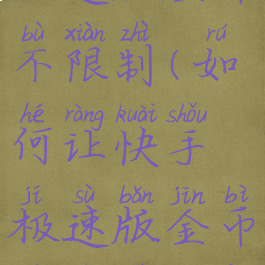 bù xiàn zhì rú
不限制(如
hé ràng kuài shǒu
何让快手
jí sù bǎn jīn bì
极速版金币